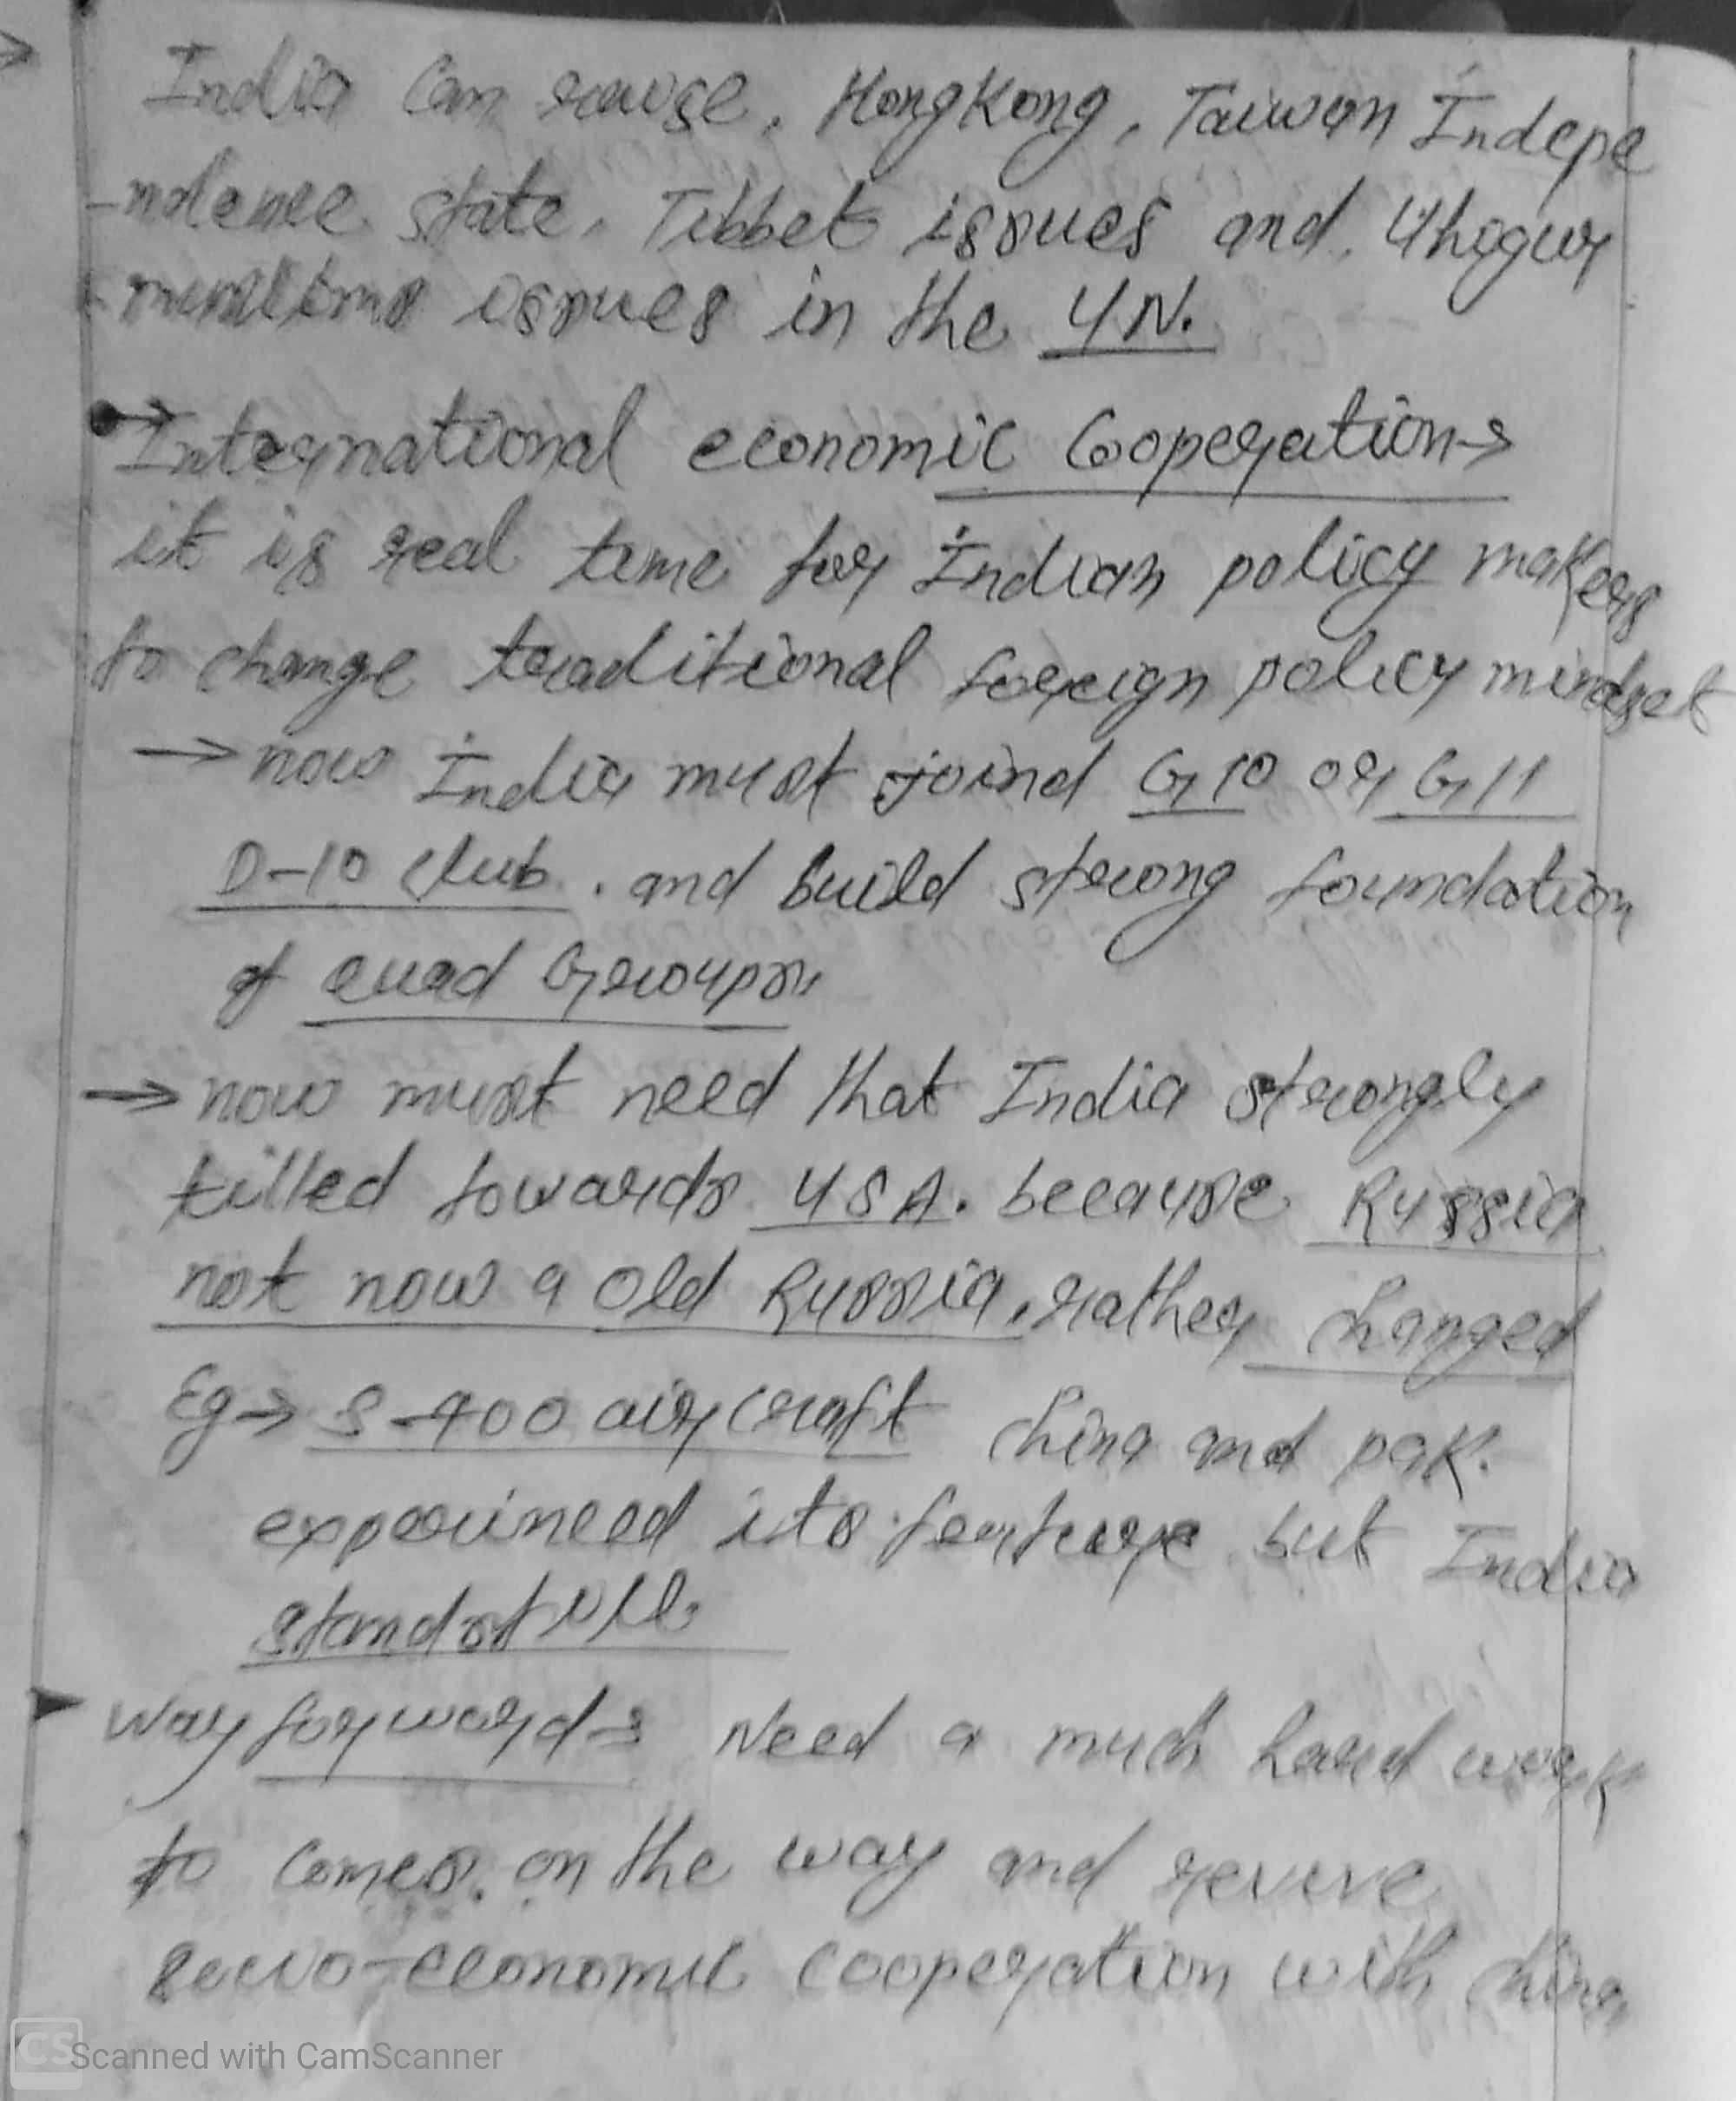 → India Can rause, HongKong, Taiwan Indepe
-ndence state, Tibbet issues and Uhogur
muslims issues in the UN.
→ International economic Cooperation→
it is real time for Indian policy makers
to change traditional foreign policy mindset
→ now India must joind G10 or G11
D-10 club . and build strong foundation
of quad Groups,
→ now must need that India strongly
tilled towards USA. because Russia
not now a old Russia, rather changed
Eg→ S-400 aircraft China and pak.
experineed its feature but India
standstill.
Way forword→ Need a much hard work
to comes. on the way and revive
socio-economic cooperation with China
CS Scanned with CamScanner